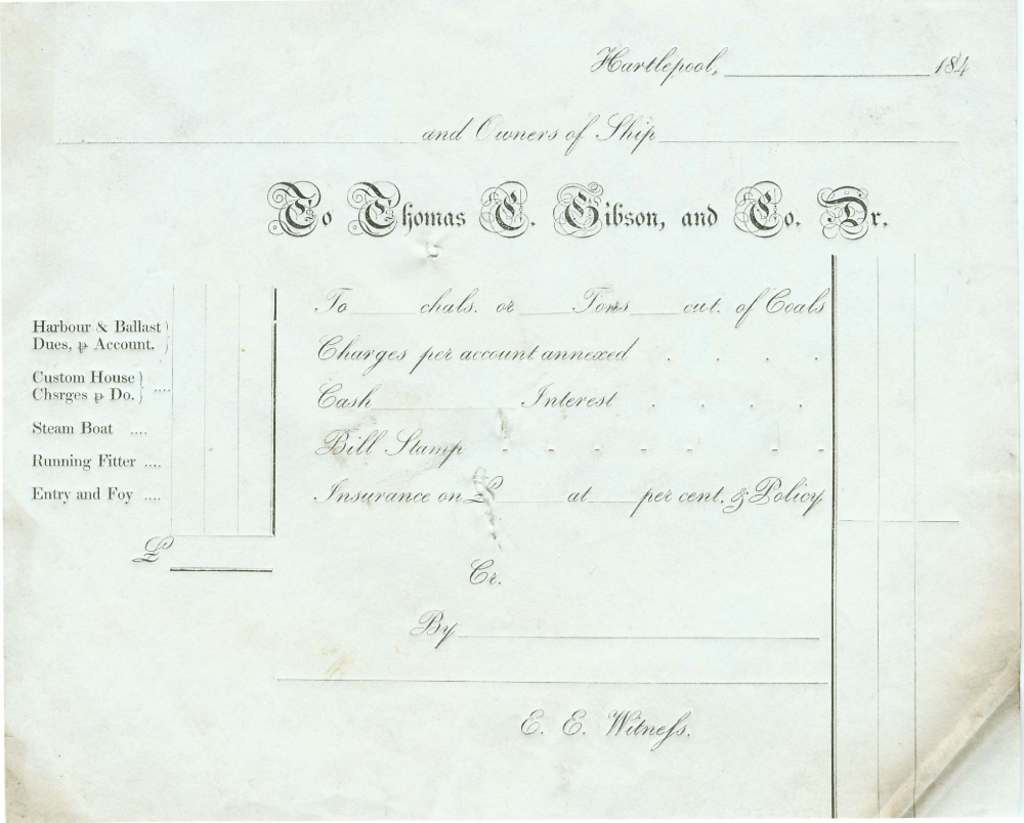 Hartlepool, 184
and Owners of Ship
To Thomas C. Gibson, and Co. Dr.
To chals. or Tons cwt. of Coals
Harbour & Ballast
Dues, ⅌ Account.
Charges per account annexed . . . .
Custom House
Chsrges ⅌ Do. ....
Cash Interest . . . .
Steam Boat ....
Bill Stamp - - - - - - -
Running Fitter ....
Entry and Foy ....
Insurance on £ at per cent. & Policy
£
Cr.
By
E. E. Witneſs.